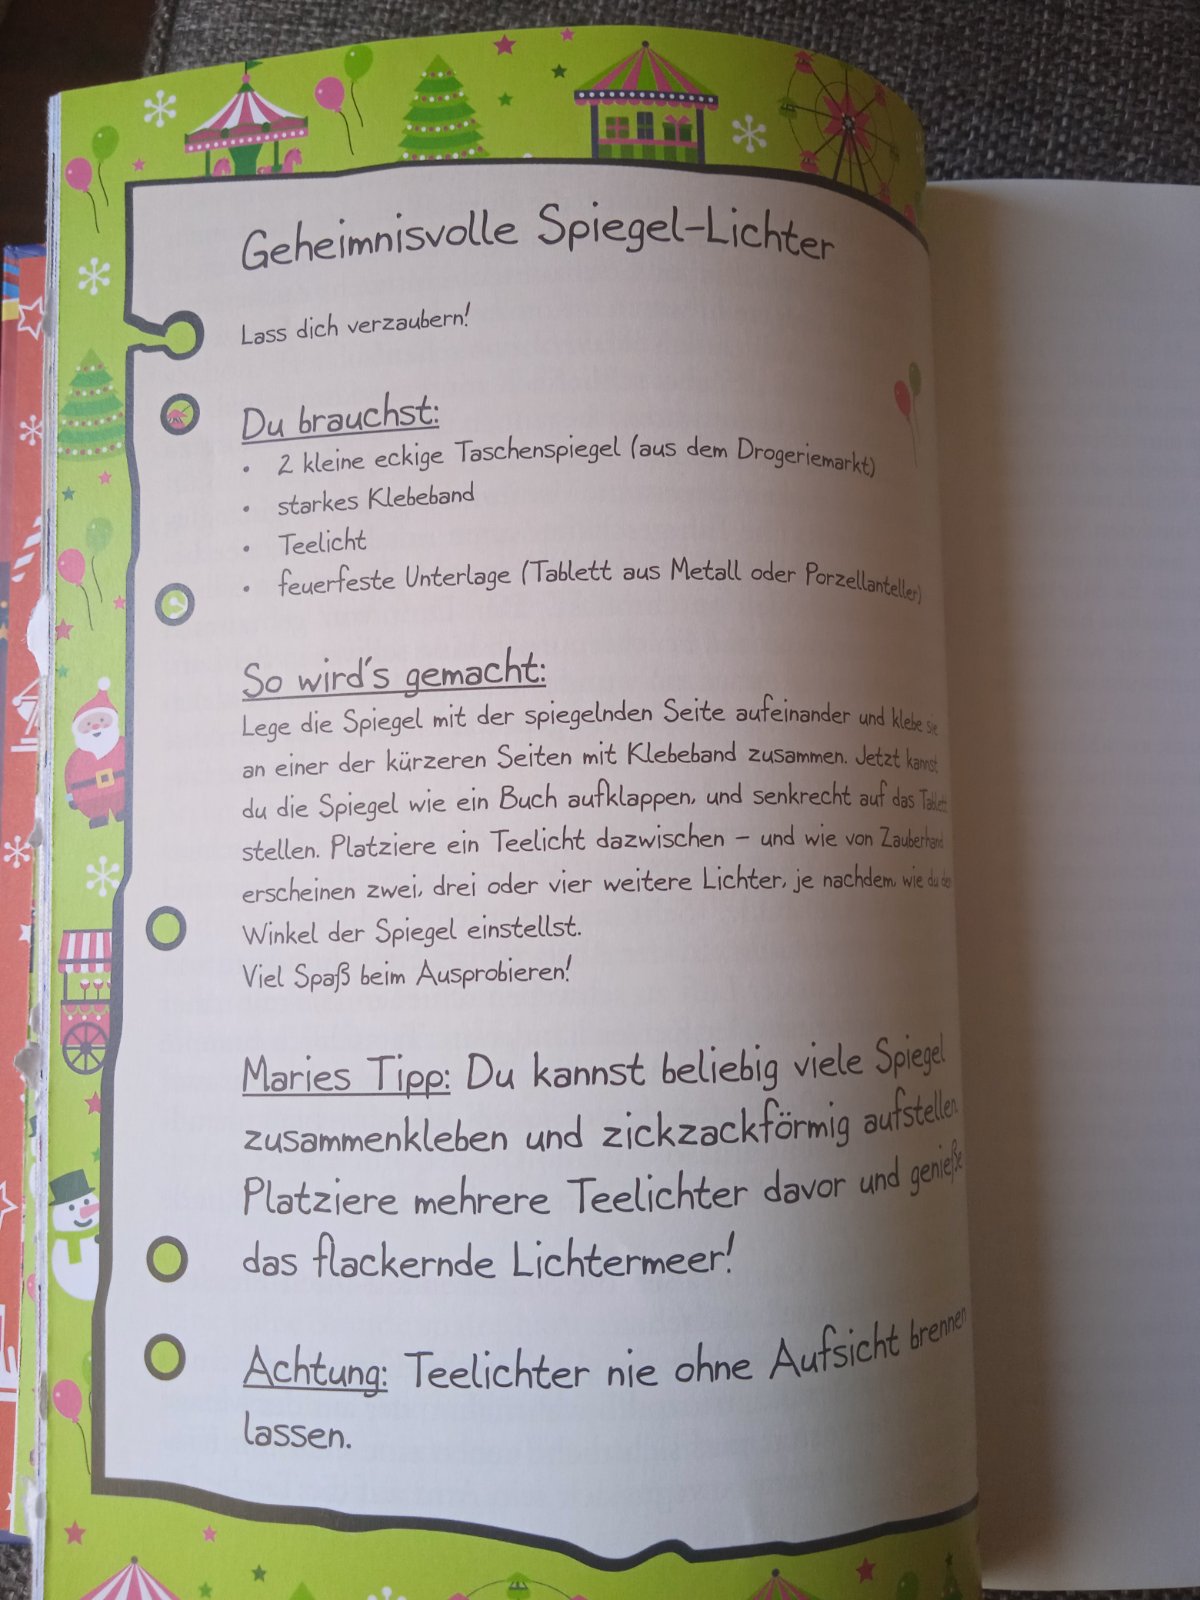 Geheimnisvolle Spiegel-Lichter
Lass dich verzaubern!
Du brauchst:
• 2 kleine eckige Taschenspiegel (aus dem Drogeriemarkt)
• starkes Klebeband
• Teelicht
• feuerfeste Unterlage (Tablett aus Metall oder Porzellanteller)
So wird's gemacht:
Lege die Spiegel mit der spiegelnden Seite aufeinander und klebe sie
an einer der kürzeren Seiten mit Klebeband zusammen. Jetzt kannst
du die Spiegel wie ein Buch aufklappen, und senkrecht auf das Tablett
stellen. Platziere ein Teelicht dazwischen – und wie von Zauberhand
erscheinen zwei, drei oder vier weitere Lichter, je nachdem wie du den
Winkel der Spiegel einstellst.
Viel Spaß beim Ausprobieren!
Maries Tipp: Du kannst beliebig viele Spiegel
zusammenkleben und zickzackförmig aufstellen.
Platziere mehrere Teelichter davor und genieße
das flackernde Lichtermeer!
Achtung: Teelichter nie ohne Aufsicht brennen
lassen.